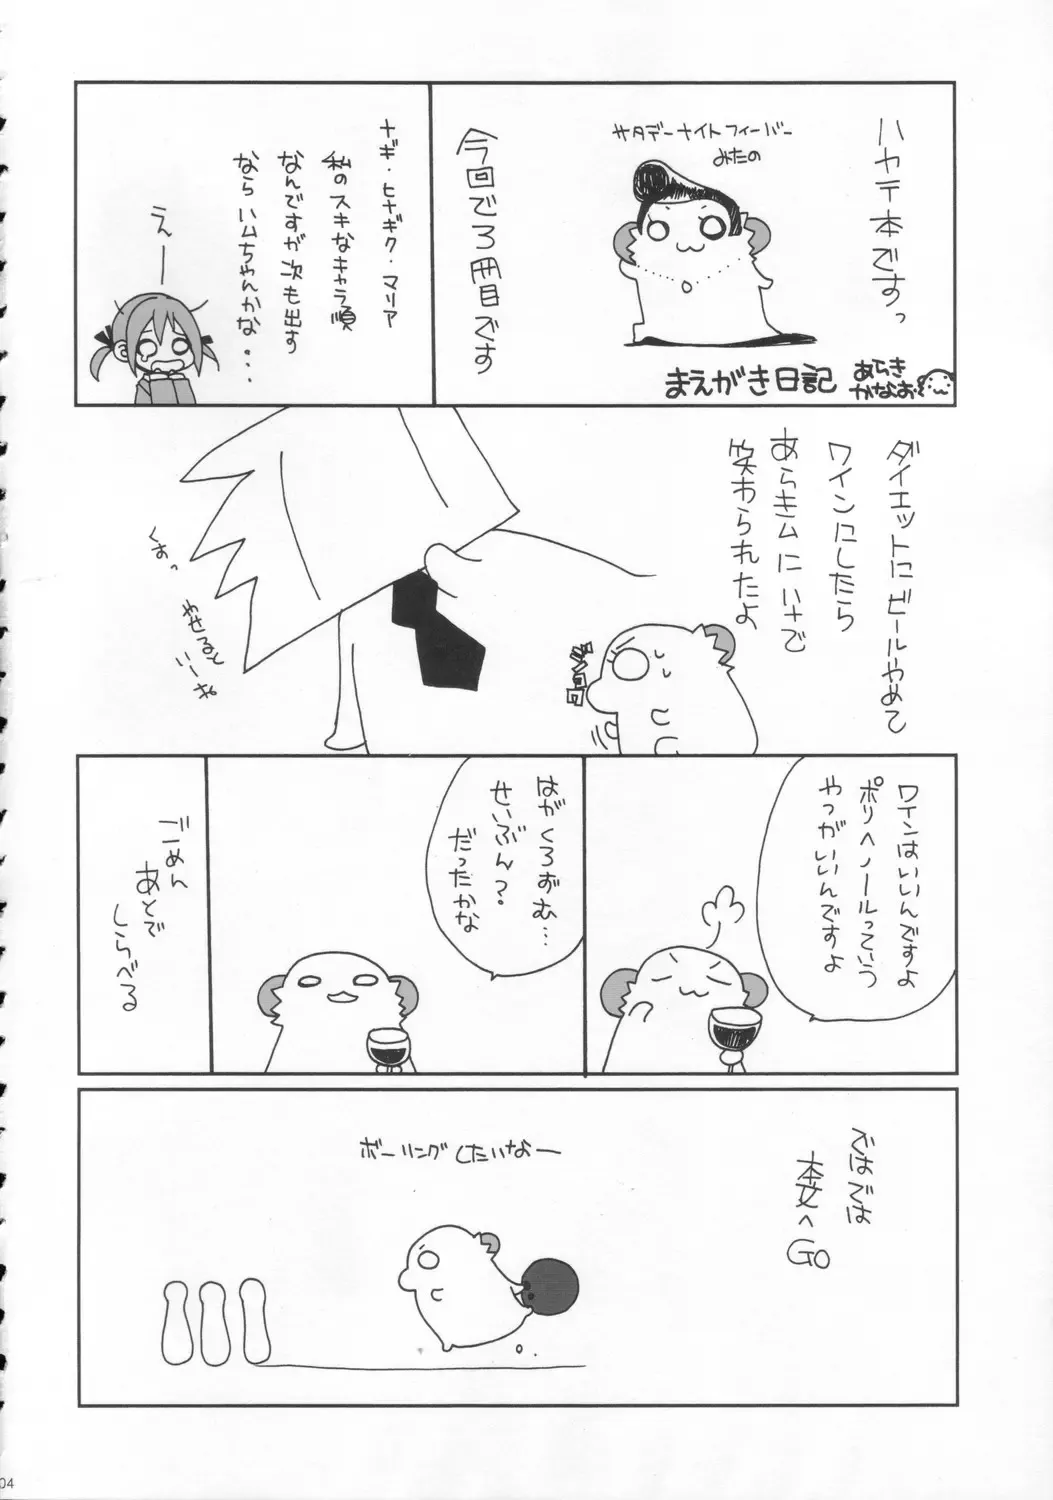 ハヤテ本ですっ
サタデーナイトフィーバー
みたの
今回で3冊目です
まえがき日記
あらき
かなお
ナギ・ヒナギク・マリア
私のスキなキャラ順
なんですが次も出す
ならハムちゃんかな・・・
えー
ダイエットにビールやめて
ワインにしたら
あらきムにハナで
笑われたよ
ジロロ
くすっ
やせると
いーね
ワインはいいんですよ
ポリヘノールっていう
やつがいいんですよ
はがくろずむ…
せいぶん?
だったかな
ごめん
あとで
しらべる
ではでは
本文へGO
ボーリングしたいなー
04